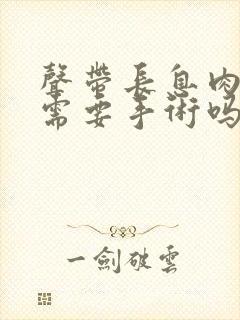 聲帶長息肉
需要手術嗎
一劍破雲